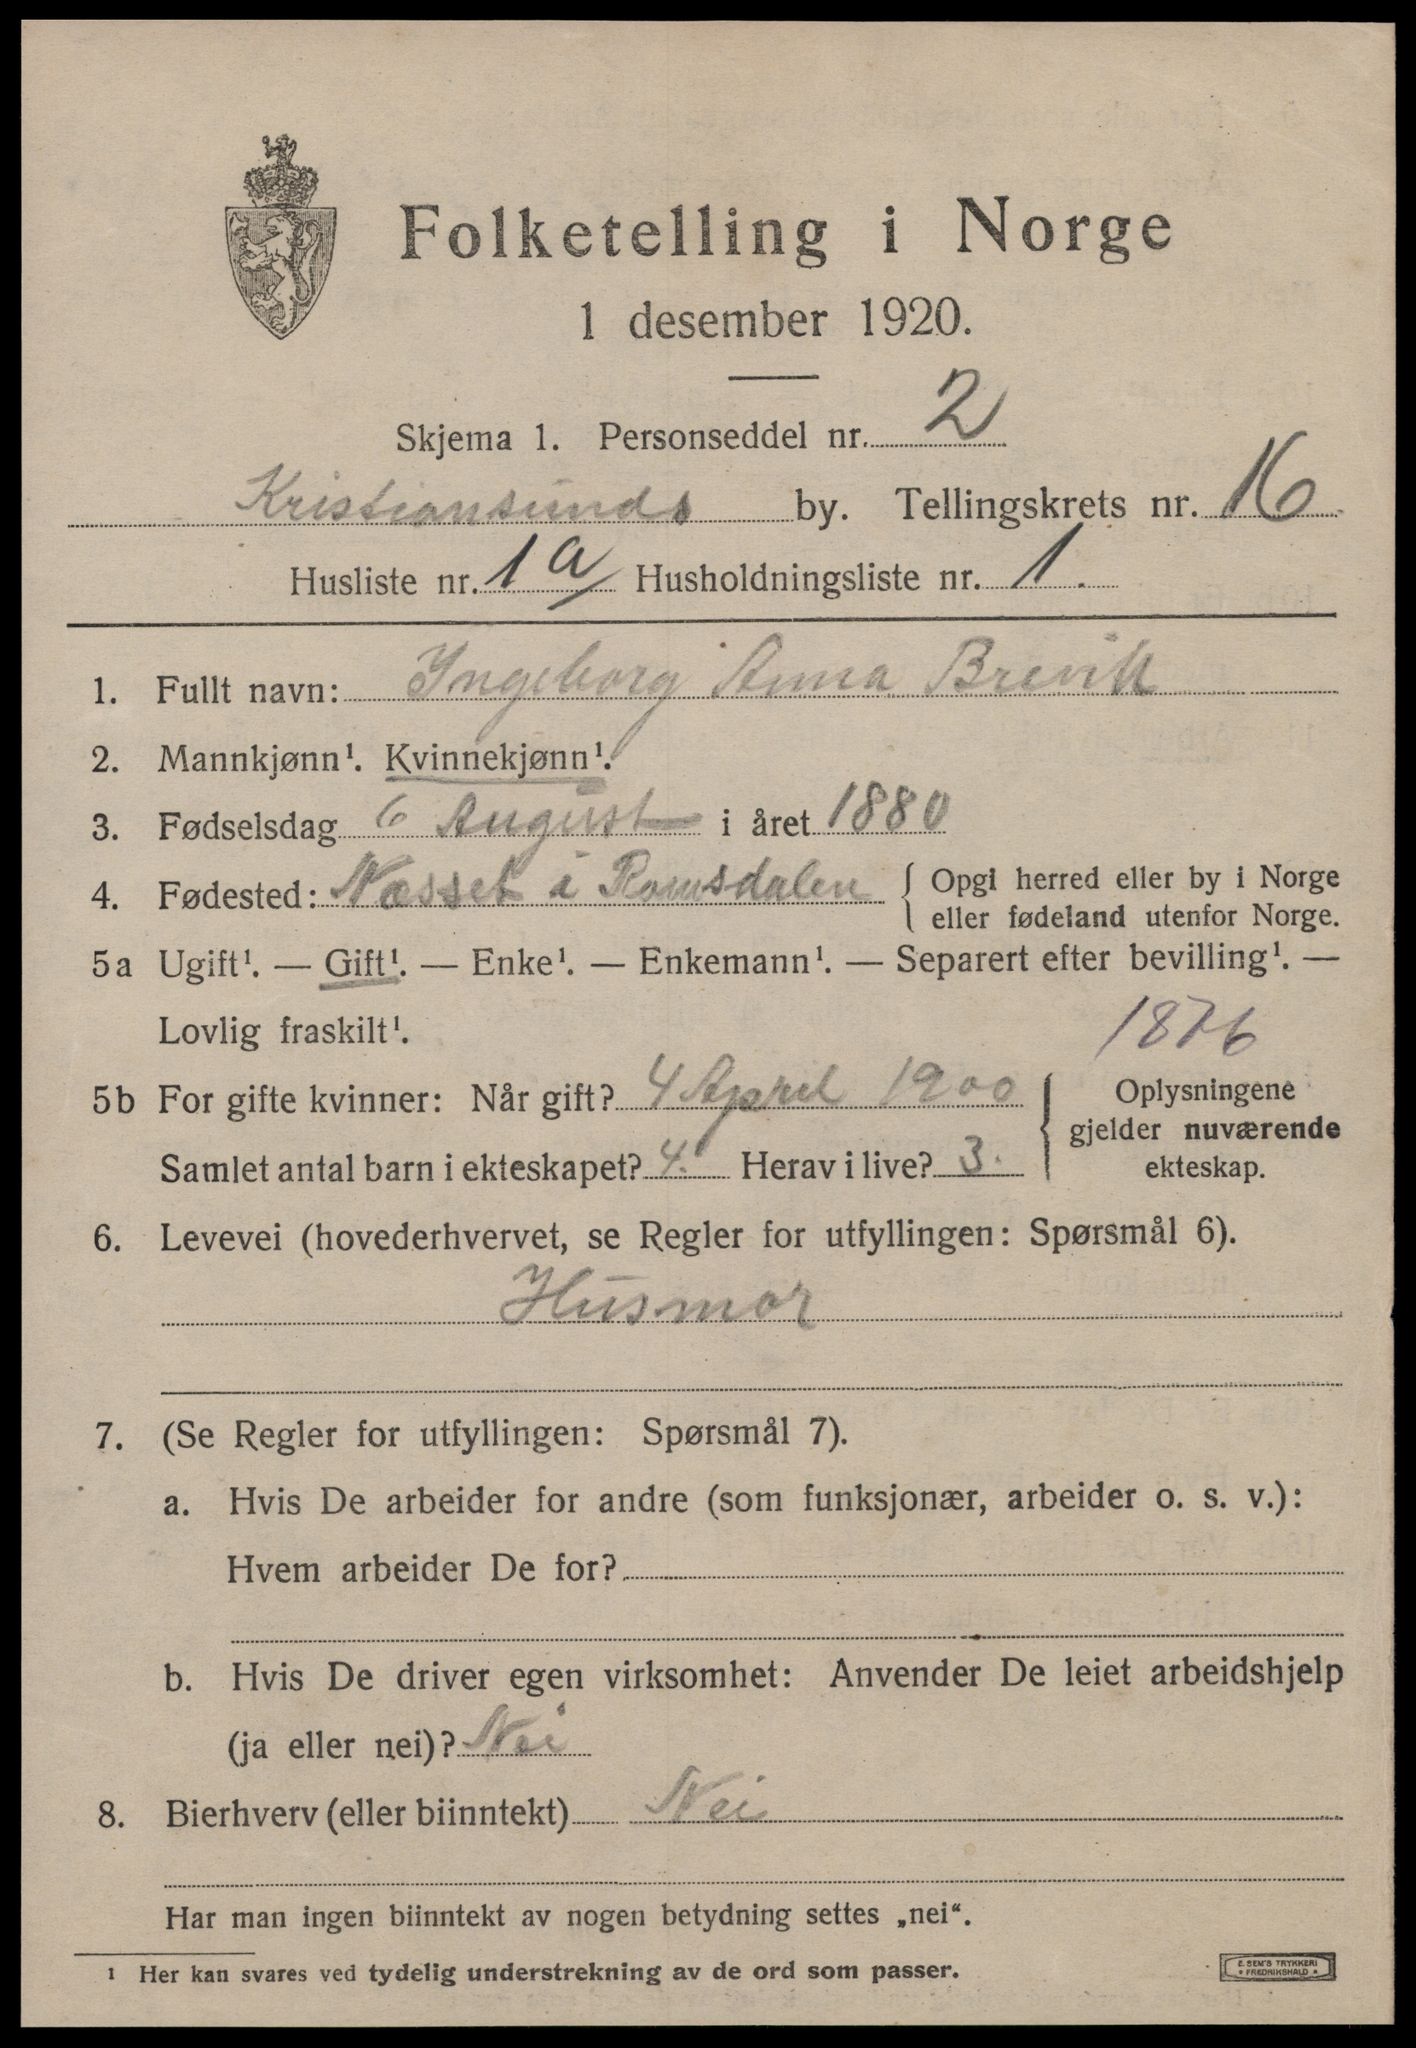 Folketelling i Norge
1 desember 1920.
Skjema 1. Personseddel nr. 2
Kristiansunds by. Tellingskrets nr. 16
Husliste nr. 1 a Husholdningsliste nr. 1.
1. Fullt navn: Ingeborg Anna Brevik
2. Mannkjønn¹. Kvinnekjønn¹.
3. Fødselsdag 6 August i året 1880
4. Fødested: Næsset i Romsdalen { Opgi herred eller by i Norge
eller fødeland utenfor Norge.
5a Ugift¹. — Gift¹. — Enke¹. — Enkemann¹. — Separert efter bevilling¹. —
Lovlig fraskilt¹.
1876
5b For gifte kvinner: Når gift? 4 April 1900
Samlet antal barn i ekteskapet? 4. Herav i live? 3.
{ Oplysningene
gjelder nuværende
ekteskap.
6. Levevei (hovederhvervet, se Regler for utfyllingen: Spørsmål 6).
Husmor
7. (Se Regler for utfyllingen: Spørsmål 7).
a. Hvis De arbeider for andre (som funksjonær, arbeider o. s. v.):
Hvem arbeider De for?
b. Hvis De driver egen virksomhet: Anvender De leiet arbeidshjelp
(ja eller nei)? Nei
8. Bierhverv (eller biinntekt) Nei
Har man ingen biinntekt av nogen betydning settes „nei“.
¹ Her kan svares ved tydelig understrekning av de ord som passer.
E. SEM'S TRYKKERI
FREDRIKSHALD